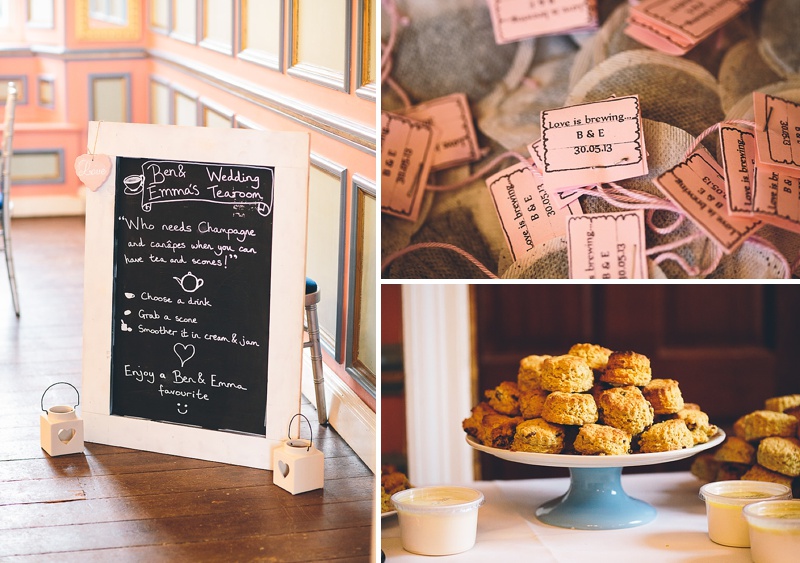 Ben & Wedding
Emma's Tearoom
"Who needs Champagne
and canapes when you can
have tea and scones!"
Choose a drink
Grab a scone
Smoother it in cream & jam
Enjoy a Ben & Emma
favourite
Love is brewing...
B & E
30.05.13
Love is brewing...
B & E
30.05.13
Love is brewing...
B & E
30.05.13
brewing...
B & E
30.05.13
Love is brewing...
B & E
30.05.13
30.05.13
B & E
30.05.13